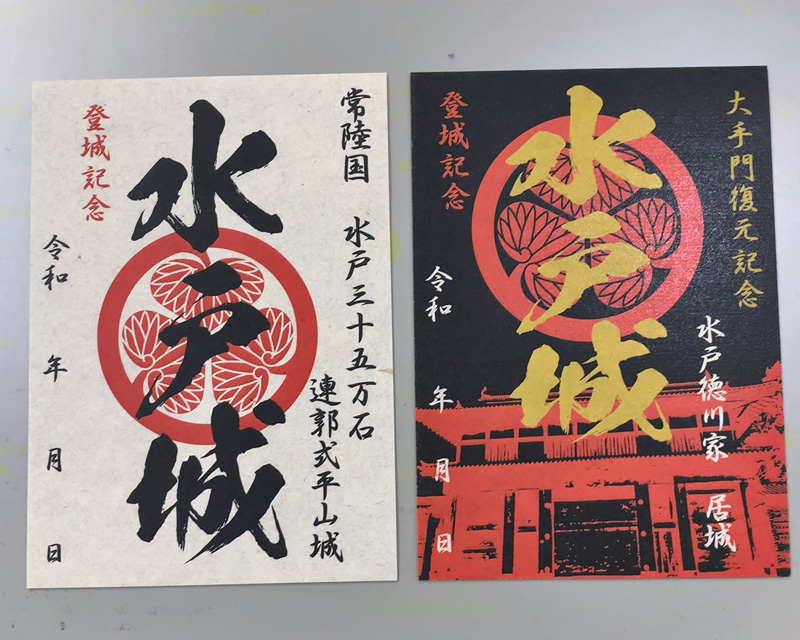 常陸国 水戸三十五万石
連郭式平山城
水戸城
登城記念
令和 年 月 日
大手門復元記念
水戸徳川家 居城
水戸城
登城記念
令和 年 月 日